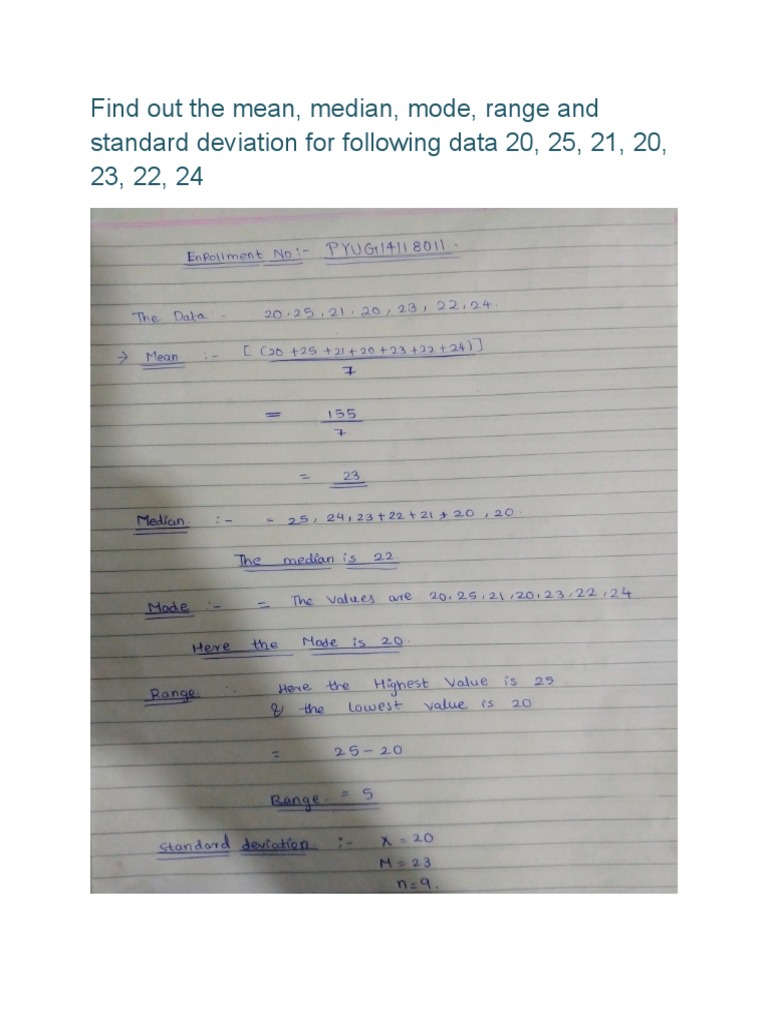 Find out the mean, median, mode, range and
standard deviation for following data 20, 25, 21, 20,
23, 22, 24
Enrollment No :- PYUG114118011.
The Data :- 20, 25, 21, 20, 23, 22, 24.
→ Mean :- [(20 + 25 + 21 + 20 + 23 + 22 + 24)]
7
= 155
7
= 23
Median :- = 25, 24, 23 + 22 + 21 + 20, 20.
The median is 22.
Mode :- = The values are 20, 25, 21, 20, 23, 22, 24
Here the Mode is 20.
Range :- Here the Highest Value is 25
& the lowest value is 20
= 25 - 20
Range = 5
Standard deviation :- X = 20
M = 23
n = 9.